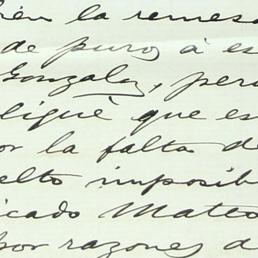 bién la remesa
de puros á es
Gonzalez, pero
ligué que es
or la falta de
elto imposib
icado Mateo
por razones d